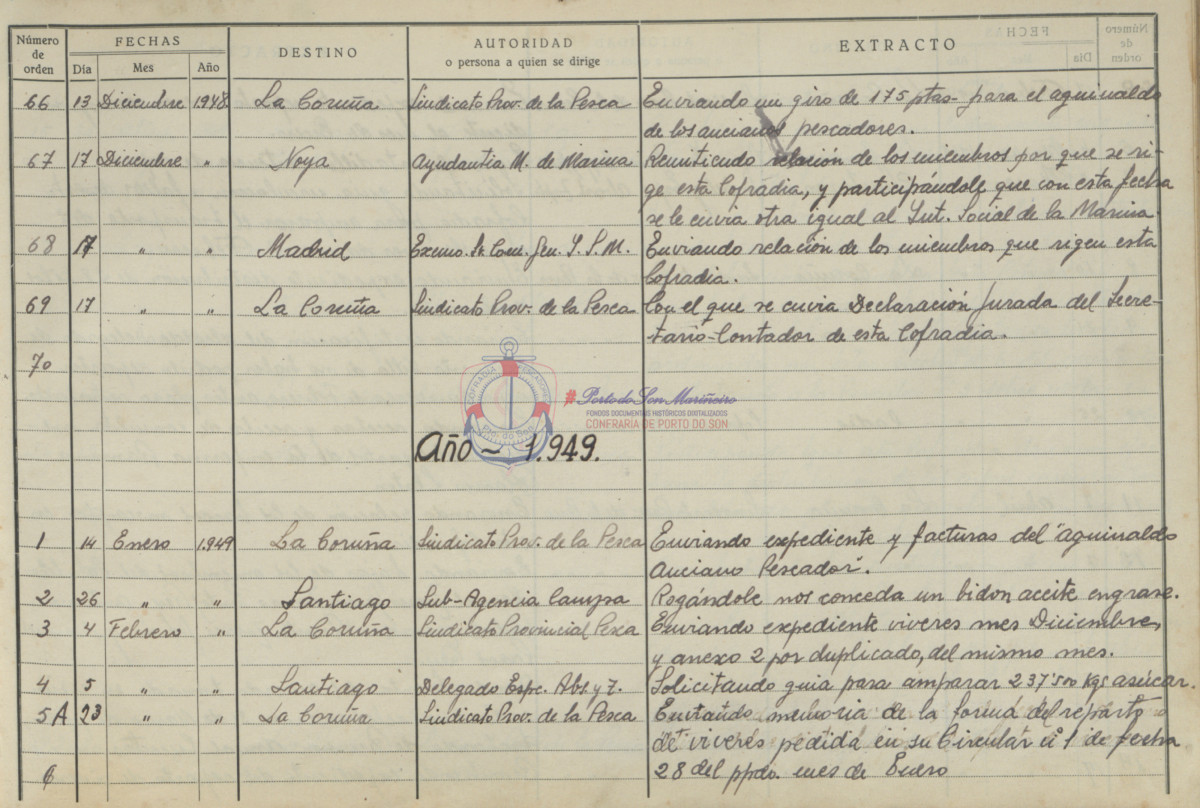 Número de orden | FECHAS | DESTINO | AUTORIDAD o persona a quien se dirige | EXTRACTO
Dia | Mes | Año
66 13 Diciembre 1.948 La Coruña Sindicato Prov. de la Pesca Enviando un giro de 175 ptas- para el aguinaldo
de los ancianos pescadores.
67 17 Diciembre " Noya Ayudantia M. de Marina Remitiendo relación de los miembros por que se ri-
ge esta Cofradia, y participándole que con esta fecha
se le envia otra igual al Ynt. Social de la Marina.
68 17 " " Madrid Excmo. Sr. Com. Gen. Y. S. M. Enviando relación de los miembros que rigen esta
Cofradia.
69 17 " " La Coruña Sindicato Prov. de la Pesca Con el que se envia Declaración Jurada del Secre-
tario-Contador de esta Cofradia.
70
COFRADIA PESCADORES
Pto. do Son
#Porto do Son Mariñeiro
FONDOS DOCUMENTAIS HISTÓRICOS DIXITALIZADOS
CONFRARÍA DE PORTO DO SON
Año - 1.949.
1 14 Enero 1.949 La Coruña Sindicato Prov. de la Pesca Enviando expediente y facturas del "aguinaldo
Anciano Pescador".
2 26 " " Santiago Sub-Agencia Campsa Rogándole nos conceda un bidon aceite engrase.
3 4 Febrero " La Coruña Sindicato Provincial Pesca Enviando expediente viveres mes Diciembre,
y anexo 2 por duplicado, del mismo mes.
4 5 " " Santiago Delegado Espc. Abs. y T. Solicitando guia para amparar 237'500 Kgs azúcar.
5A 23 " " La Coruña Sindicato Prov. de la Pesca Enviando memoria de la forma del reparto
de viveres pedida en su Circular nº 1 de fecha
6 28 del ppdo. mes de Enero